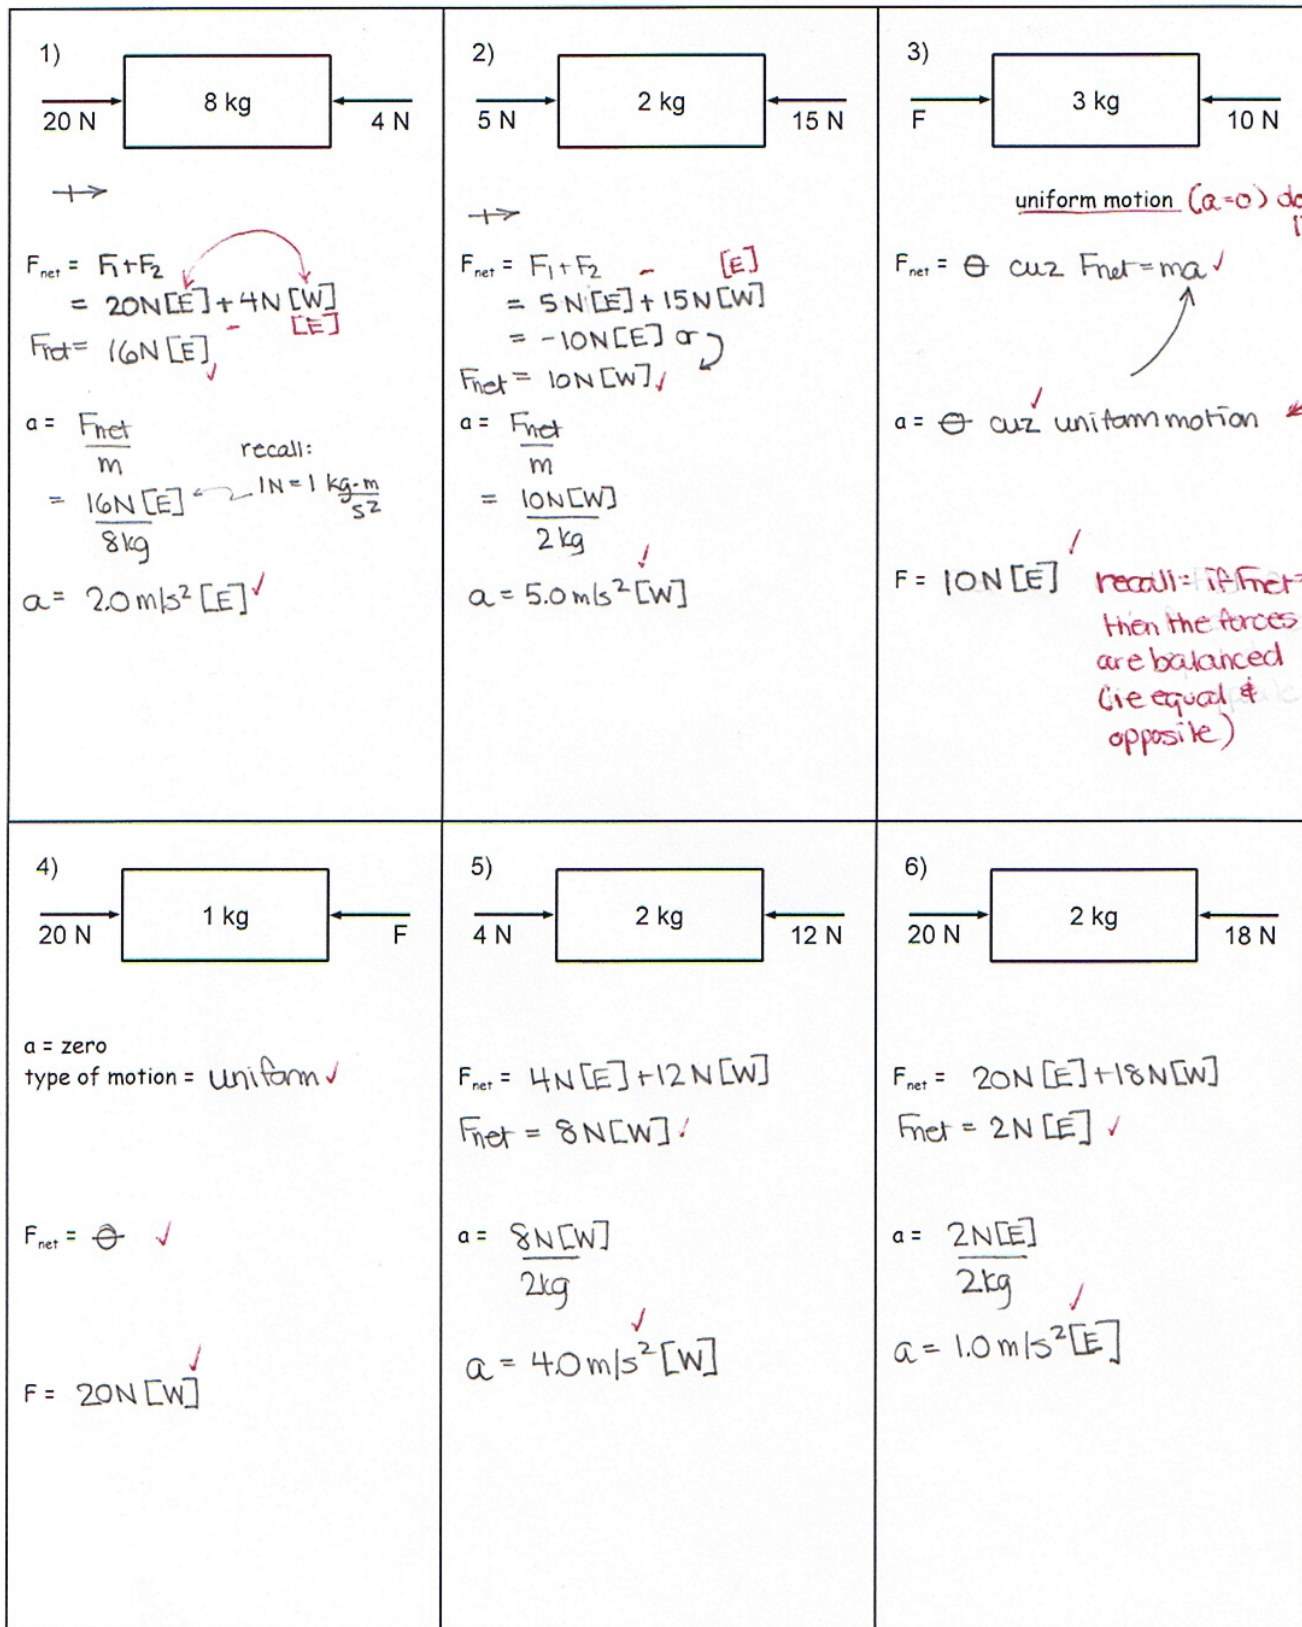 1)
8 kg
20 N
4 N
+→
Fnet = F1+F2
= 20N[E] + 4N[W]
- [E]
Fnet = 16N[E] ✓
a = Fnet
m
recall:
1N = 1 kg·m
s2
= 16N[E]
8kg
a = 2.0 m/s² [E] ✓
2)
2 kg
5 N
15 N
+→
Fnet = F1+F2
- [E]
= 5N[E] + 15N[W]
= -10N[E] or
Fnet = 10N[W] ✓
a = Fnet
m
= 10N[W]
2kg
✓
a = 5.0 m/s² [W]
3)
3 kg
F
10 N
uniform motion (a=0)
Fnet = 0 cuz Fnet=ma ✓
✓
a = 0 cuz uniform motion
✓
F = 10N[E] recall: if Fnet=
then the forces
are balanced
(ie equal &
opposite)
4)
1 kg
20 N
F
a = zero
type of motion = uniform ✓
Fnet = 0 ✓
✓
F = 20N[W]
5)
2 kg
4 N
12 N
Fnet = 4N[E]+12N[W]
Fnet = 8N[W] ✓
a = 8N[W]
2kg
✓
a = 4.0 m/s² [W]
6)
2 kg
20 N
18 N
Fnet = 20N[E]+18N[W]
Fnet = 2N[E] ✓
a = 2N[E]
2kg
✓
a = 1.0 m/s² [E]